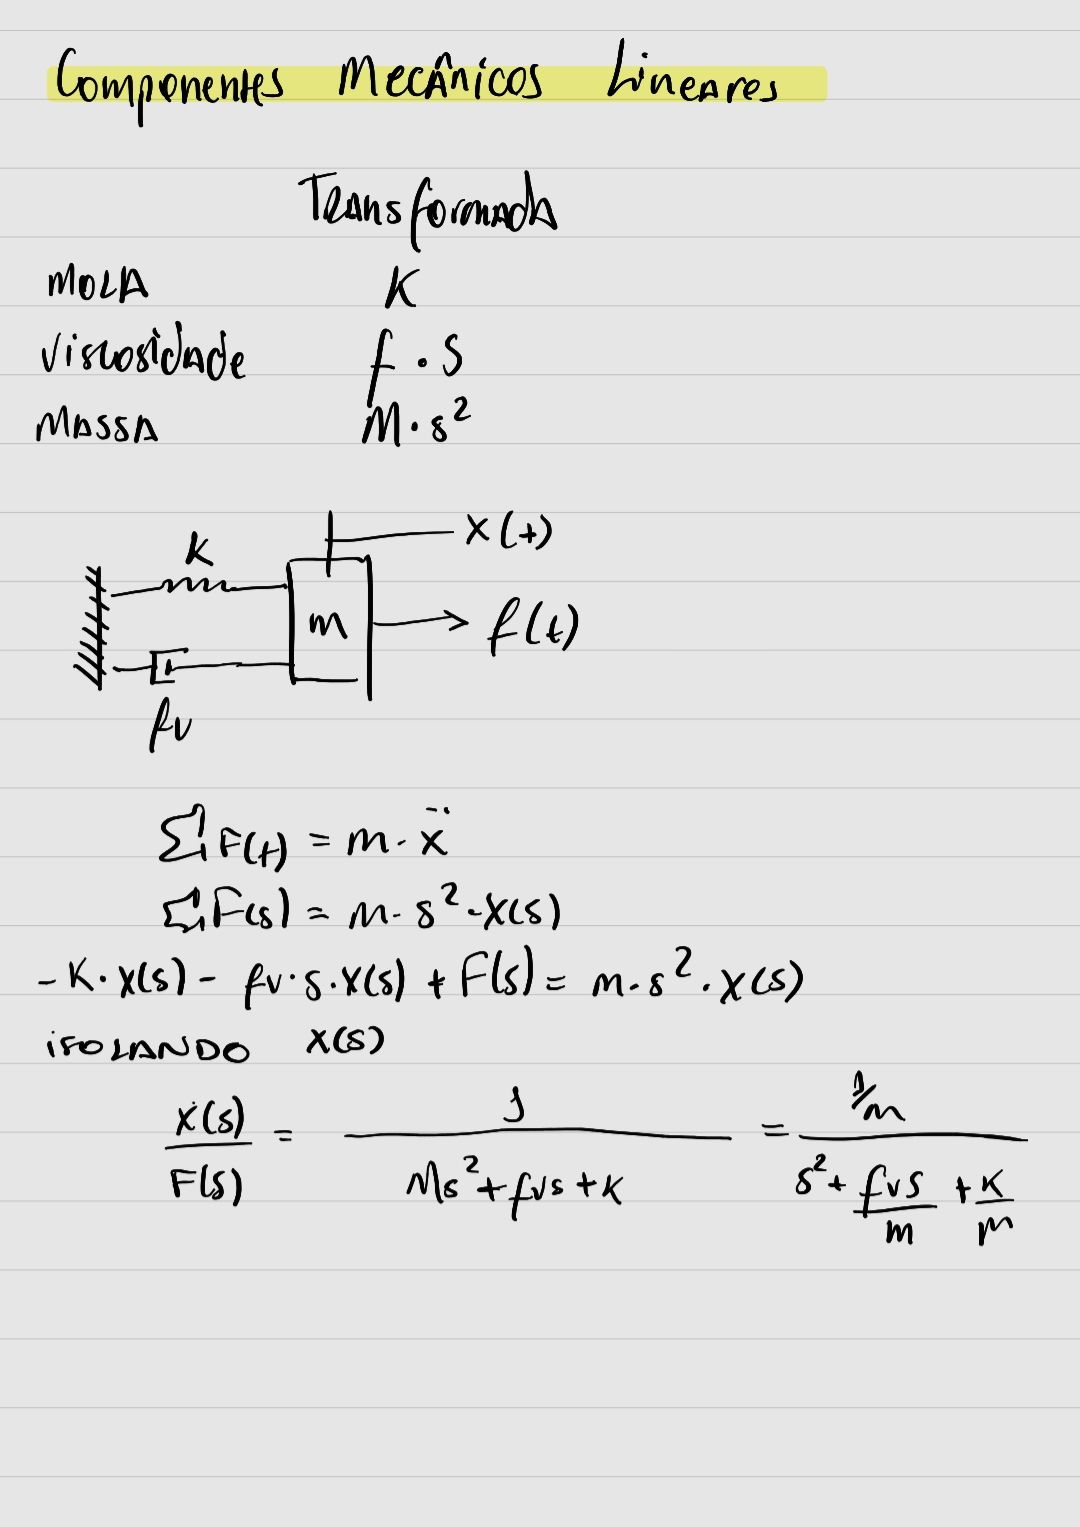 Componentes Mecânicos Lineares
Transformada
MOLA K
Viscosidade f . s
MASSA M . s²
K
x(t)
m
f(t)
fv
Σ F(t) = m . ẍ
Σ F(s) = m . s² . X(s)
- K . X(s) - fv . s . X(s) + F(s) = m . s² . X(s)
isOLANDO X(s)
X(s)/F(s) = 1/(Ms² + fvs + K) = (1/m)/(s² + fvs/m + K/m)